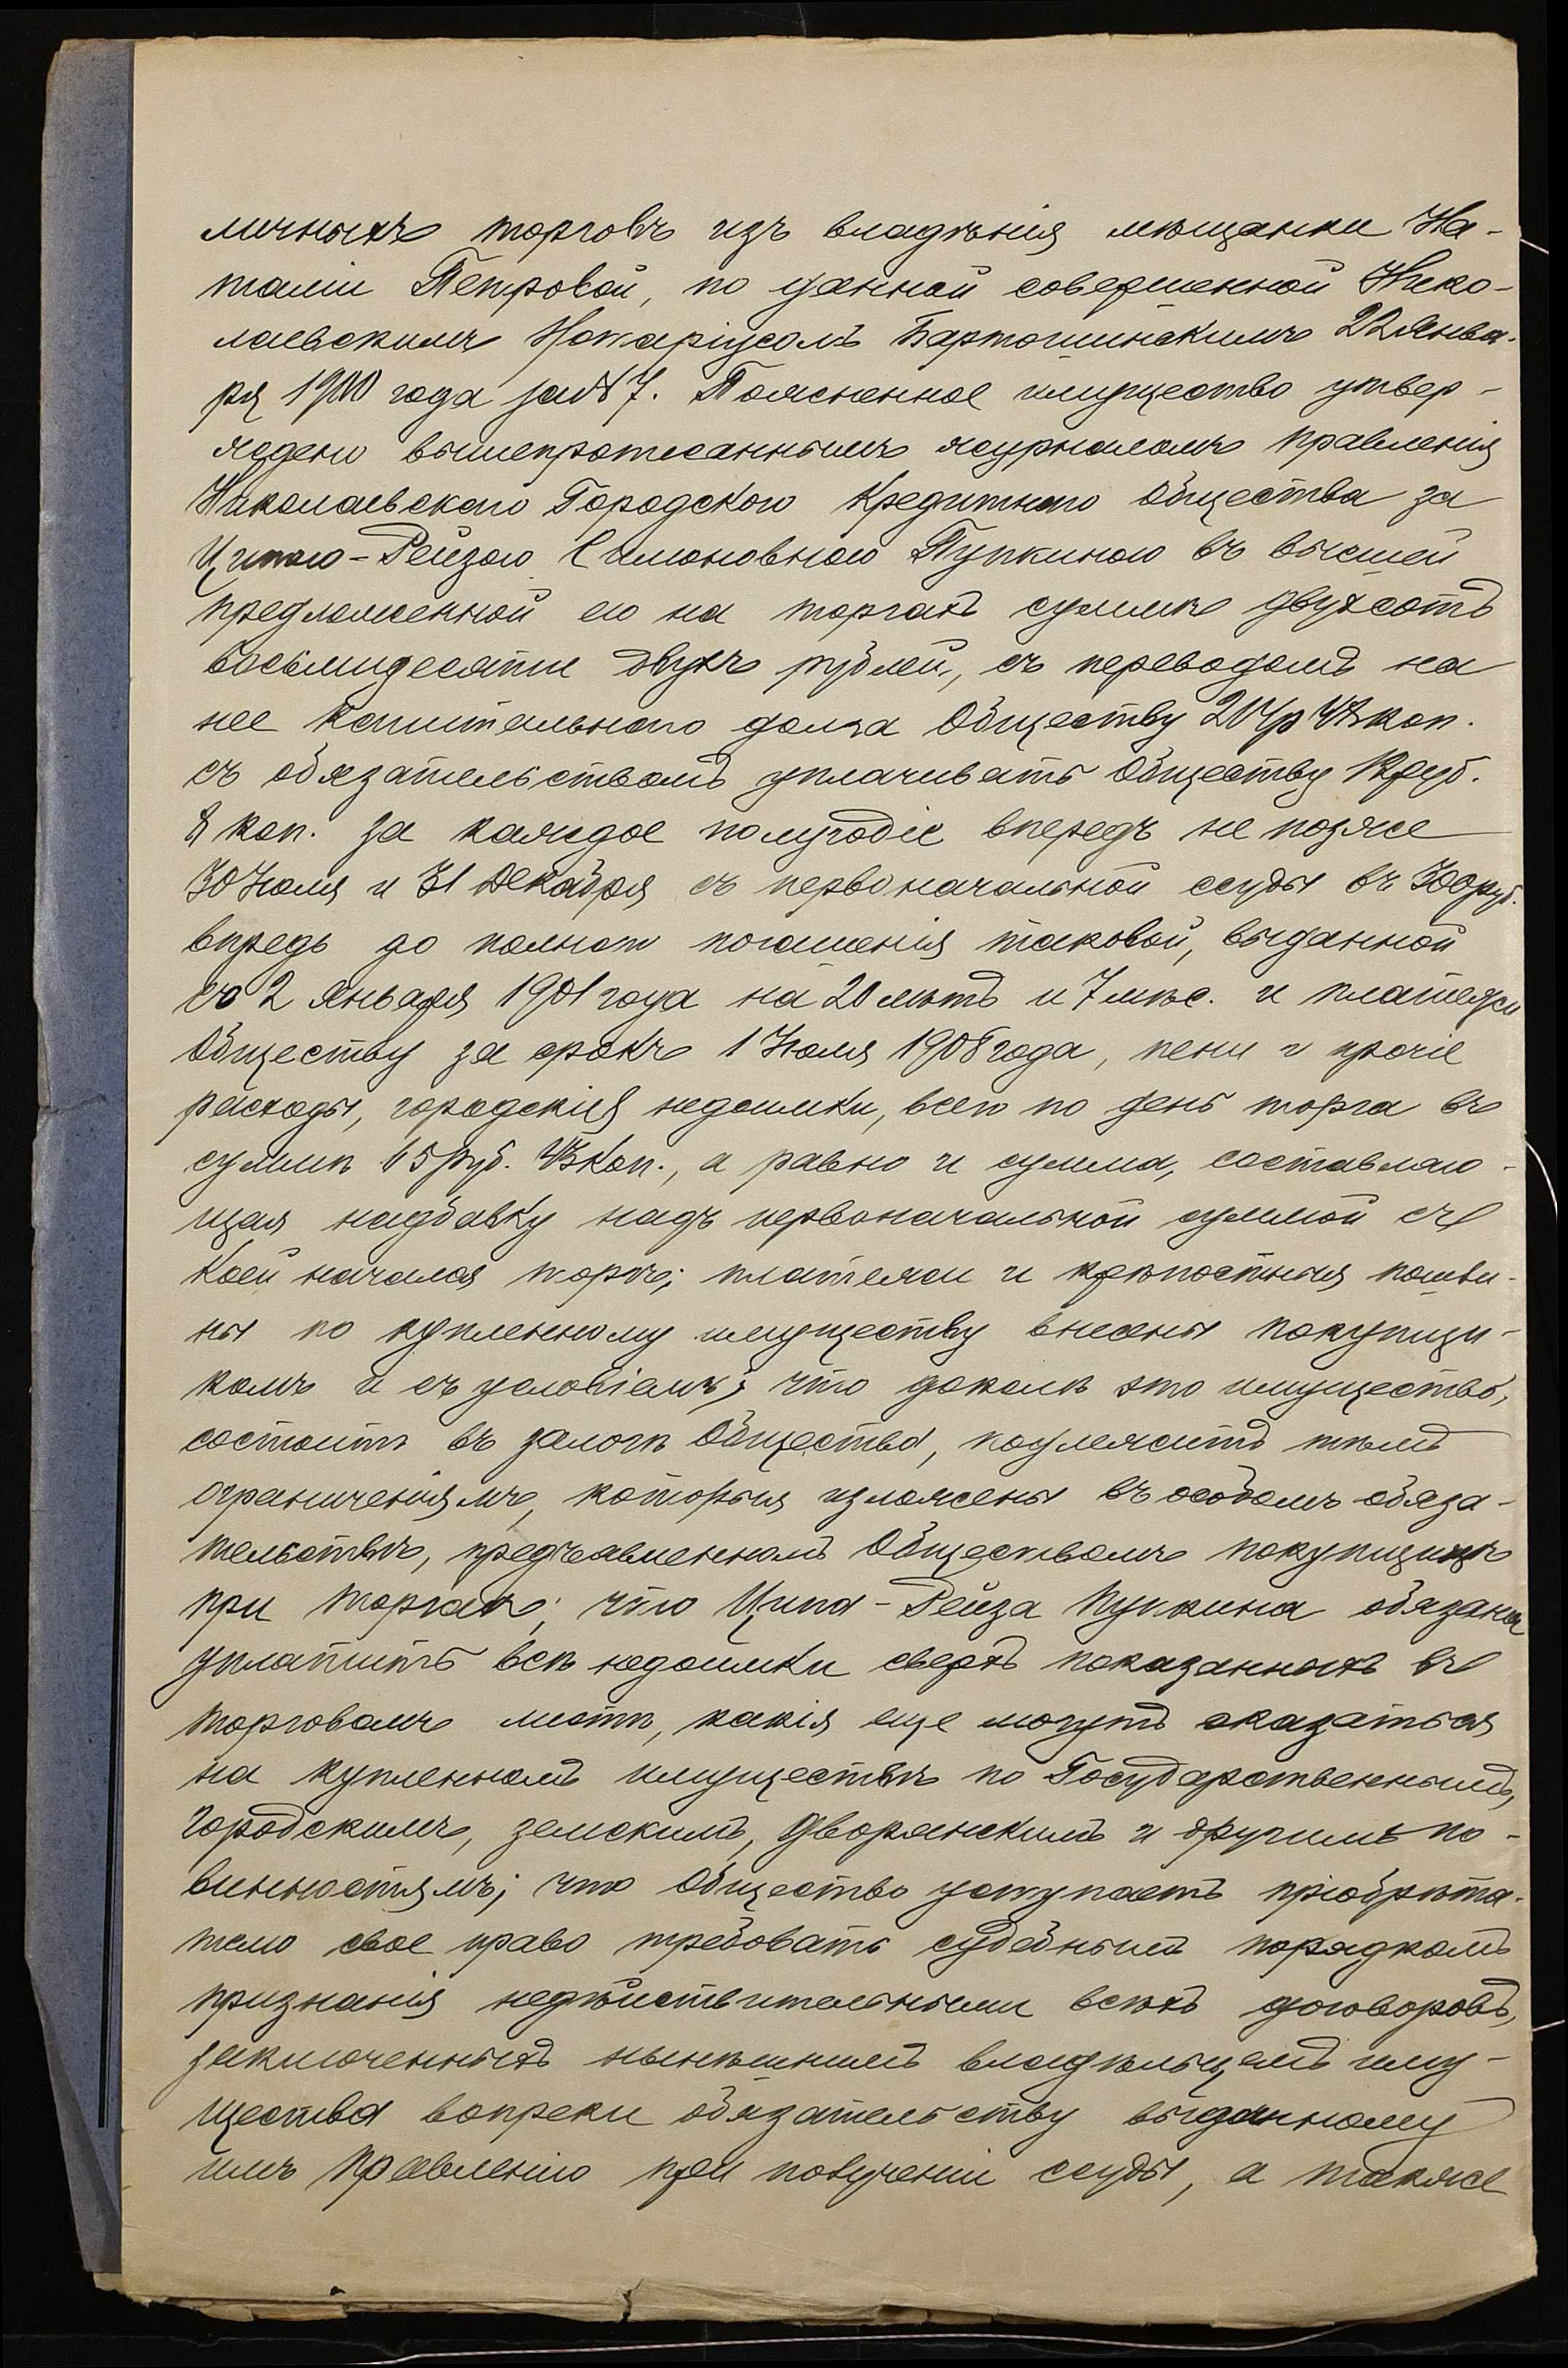 личныхъ торговъ изъ владѣнія мѣщанки На-
таліи Петровой, по данной совершенной Нико-
лаевскимъ Нотаріусомъ Бартошинскимъ 22 Янва-
ря 1900 года за № 7. Поясненное имущество утвер-
ждено вышепрописаннымъ журналомъ Правленія
Николаевскаго Городского Кредитнаго Общества за
Ципою-Рейзою Симоновною Пупкиною въ высшей
предложенной ею на торгахъ суммѣ двухсотъ
восьмидесяти двухъ рублей, съ переводомъ на
нее капитальнаго долга Обществу
съ обязательствомъ уплачивать Обществу
коп. за каждое полугодіе впередъ не позже
30 Іюля и 31 Декабря съ первоначальной ссуды въ 300 руб.
впредь до полнаго погашенія таковой, выданной
со 2 Января 1901 года на 20 лѣтъ и 7 мѣс. и платежи
Обществу за срокъ 1 Іюля 1908 года, пени и прочіе
расходы, городскія недоимки, всего по день торга въ
суммѣ 65 руб. коп., а равно и сумма, составляю-
щая надбавку надъ первоначальной суммой съ
коей начался торгъ; платежи и крѣпостныя пошли-
ны по купленному имуществу внесены покупщи-
комъ и съ условіемъ; что доколѣ это имущество,
состоитъ въ залогѣ Общества, подлежитъ тѣмъ
ограниченіямъ, которыя изложены въ особомъ обяза-
тельствѣ, предъявленномъ Обществомъ покупщицѣ
при торгахъ; что Ципа-Рейза Пупкина обязана
уплатить всѣ недоимки сверхъ показанныхъ въ
торговомъ листѣ, какія еще могутъ оказаться
на купленномъ имуществѣ по Государственнымъ,
городскимъ, земскимъ, дворянскимъ и другимъ по-
винностямъ; что Общество уступаетъ пріобрѣта-
телю свое право требовать судебнымъ порядкомъ
признанія недѣйствительными всѣхъ договоровъ,
заключенныхъ нынѣшнимъ владѣльцемъ иму-
щества вопреки обязательству выданному
имъ Правленію при полученіи ссуды, а также